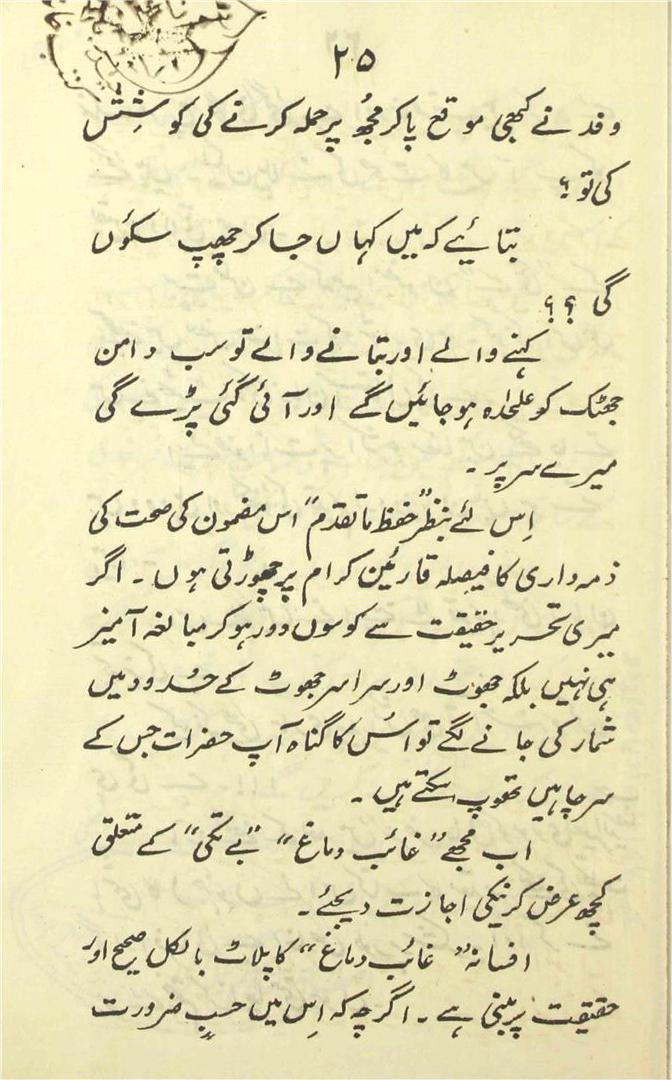 ۲۵
وفد نے کبھی موقع پا کر مجھ پر حملہ کرنے کی کوشش
کی تو؟
بتائیے کہ میں کہاں جا کر چھپ سکوں
گی ؟؟
کہنے والے اور بتانے والے تو سب دامن
جھٹک کو علٰحدہ ہو جائیں گے اور آئی گئی پڑے گی
میرے سر پر ۔
اِس لئے بنظر "حفظ ماتقدم" اس مضمون کی صحت کی
ذمہ داری کا فیصلہ قارئین کرام پر چھوڑتی ہوں ۔ اگر
میری تحریر حقیقت سے کوسوں دور ہو کر مبالغہ آمیز
ہی نہیں بلکہ جھوٹ اور سراسر جھوٹ کے حدود میں
شمار کی جانے لگے تو اُس کا گناہ آپ حضرات جس کے
سر چاہیں تھوپ سکتے ہیں ۔
اب مجھے "غائب دماغ" "بے تکی" کے متعلق
کچھ عرض کرنیکی اجازت دیجئے ۔
افسانہ "غائب دماغ" کا پلاٹ بالکل صحیح اور
حقیقت پر مبنی ہے ۔ اگرچہ کہ اِس میں حسبِ ضرورت